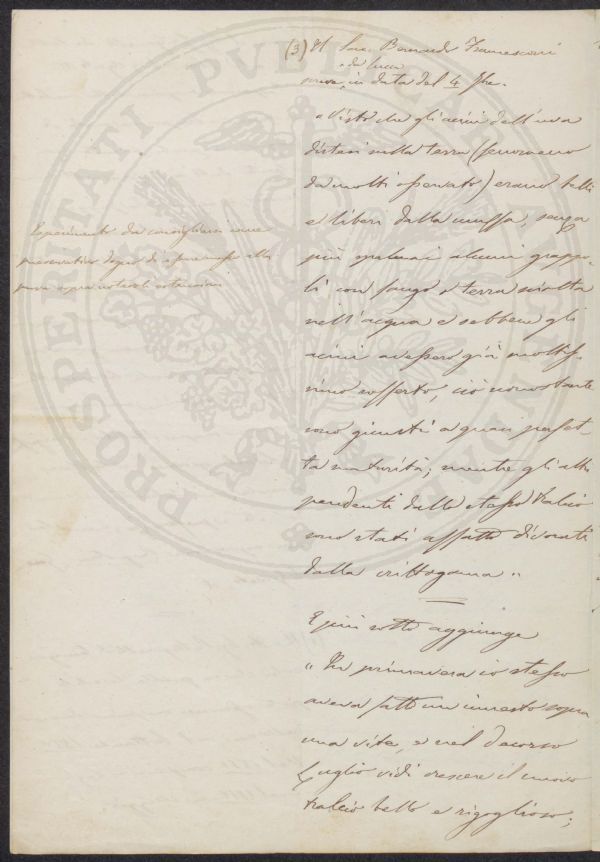 (3) Il Sac. Bernardo Francesconi
da Lucca
scrive, in data del 4 9bre.
"Visto che gli acini dell'uva
distesi sulla terra (fenomeno
da molti osservato) erano belli
e liberi dalla muffa, senza
più alcuni grappo-
li con fango o terra sciolta
nell'acqua e sebbene gli
acini avessero già moltis-
simo sofferto, ciò nonostante
sono giunti a quasi perfet-
ta maturità; mentre gli altri
pendenti dallo stesso tralcio
sono stati affatto divorati
dalla crittogama"
E più sotto aggiunge
"In primavera io stesso
aveva fatto un innesto sopra
una vite, e nel decorso
Luglio vidi crescere il nuovo
tralcio bello e rigoglioso;
Esperimento da consigliarsi come
preservativo degno di esser messo alla
prova sopra notevoli estensioni
PROSPERITATI PVBLICAE AVGENDAE